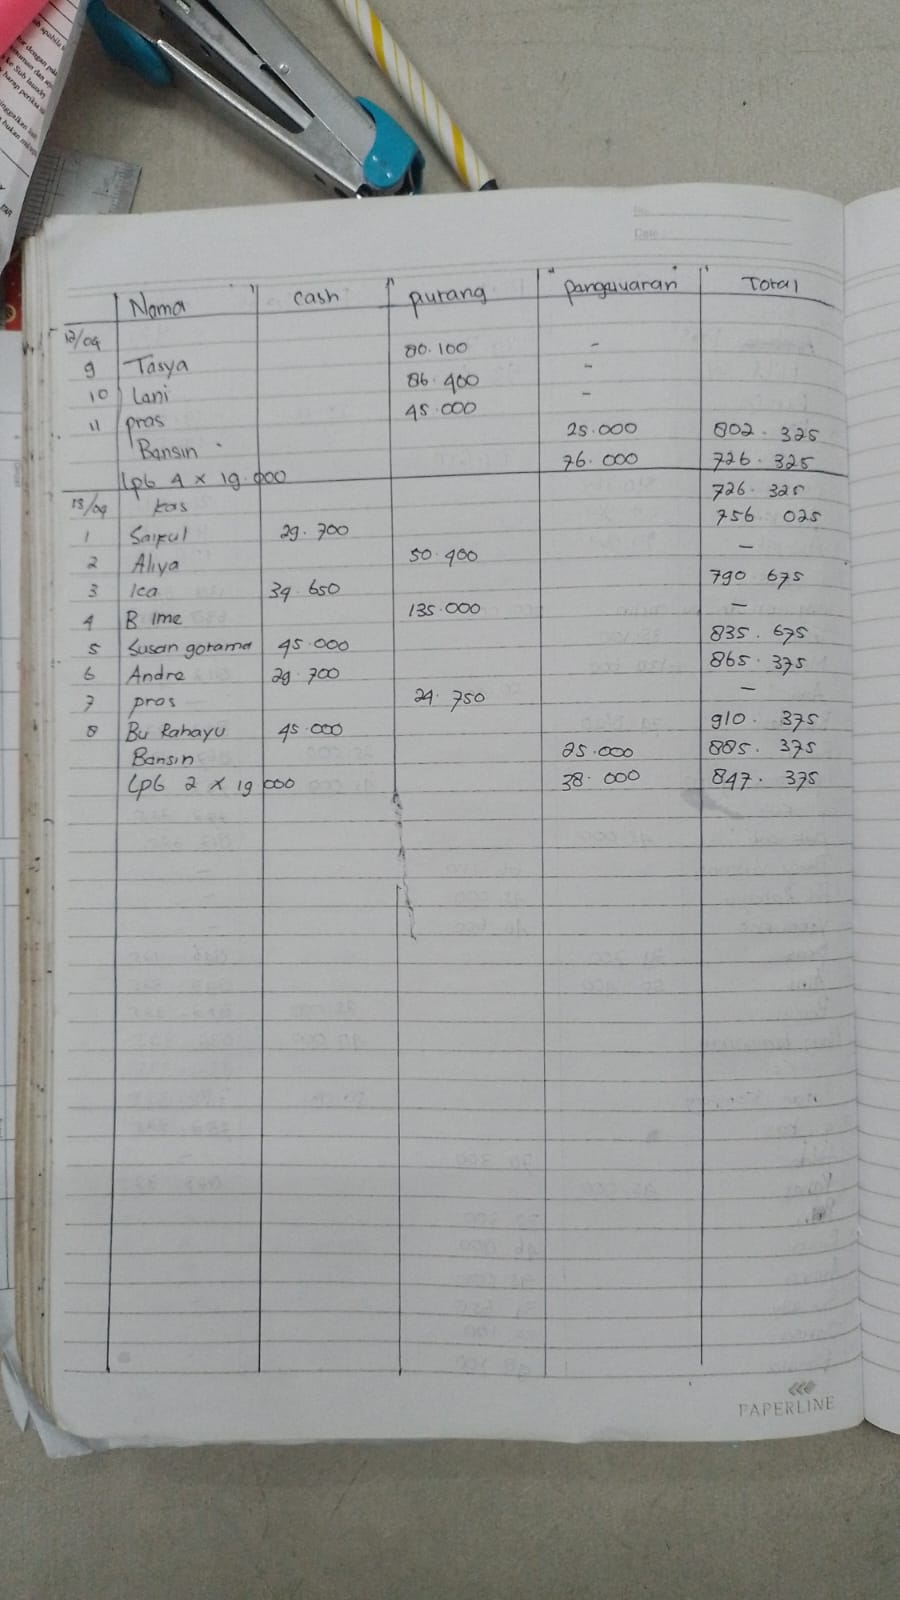 Nama cash piutang pengeluaran Total
12/09
9 Tasya 80.100 -
10 Lani 86.400 -
11 pras 45.000 -
Bensin 25.000 802.325
Lpg 4 x 19.000 76.000 726.325
13/09 kas 726.325
1 Saiful 29.700 756.025
2 Aliya 50.400 -
3 Ica 34.650 790.675
4 B Ime 135.000 -
5 Susan gotama 45.000 835.675
6 Andre 29.700 865.375
7 pras 24.750 -
8 Bu Rahayu 45.000 910.375
Bensin 25.000 885.375
Lpg 2 x 19 000 38.000 847.375
PAPERLINE